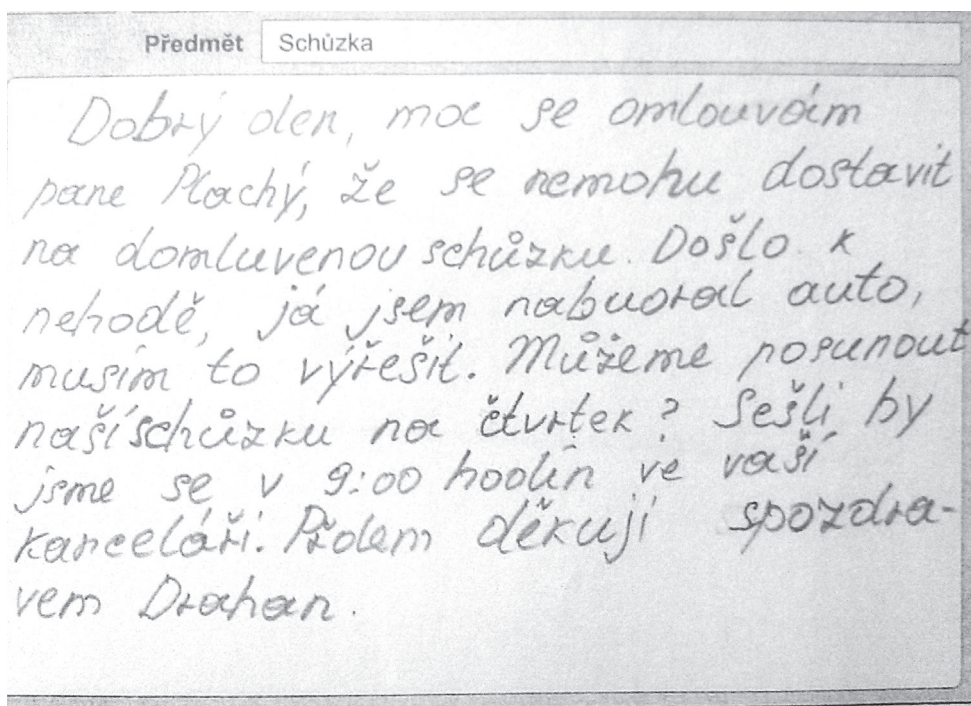 Předmět Schůzka
Dobrý den, moc se omlouvám
pane Plachý, že se nemohu dostavit
na domluvenou schůzku. Došlo k
nehodě, já jsem nabuoral auto,
musím to výřešit. Můžeme posunout
naší schůzku na čtvrtek? Sešli by
jsme se v 9:00 hodin ve vaší
kanceláři. Předem děkuji spozdra-
vem Drahan.